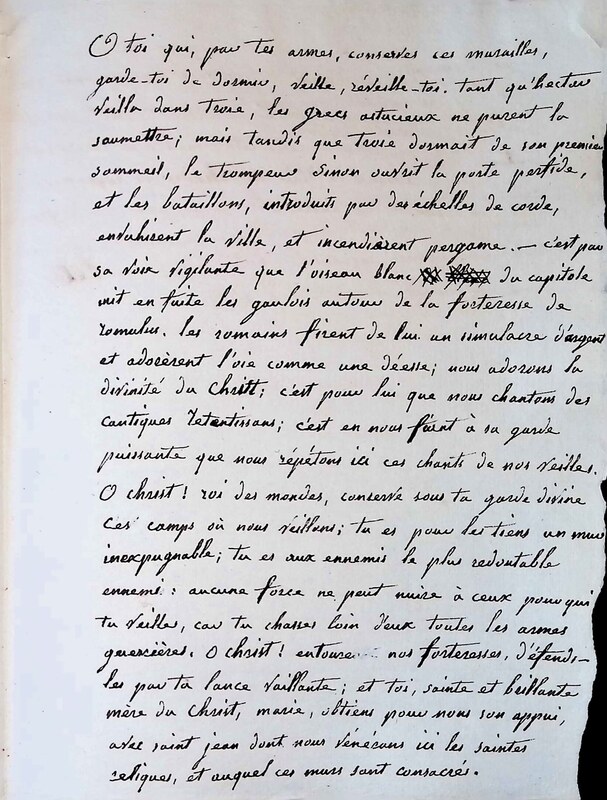 O toi qui, par tes armes, conserves ces murailles,
garde-toi de dormir, veille, réveille-toi. tant qu'hector
veilla dans troie, les grecs astucieux ne purent la
soumettre; mais tandis que troie dormait de son premier
sommeil, le trompeur Sinon ouvrit la porte perfide,
et les bataillons, introduits par des échelles de corde,
envahirent la ville, et incendièrent pergame. — c'est par
sa voix vigilante que l'oiseau blanc du capitole
mit en fuite les gaulois autour de la forteresse de
romulus. les romains firent de lui un simulacre d'argent
et adorèrent l'oie comme une déesse; nous adorons la
divinité du Christ; c'est pour lui que nous chantons des
cantiques retentissans; c'est en nous fiant à sa garde
puissante que nous répétons ici ces chants de nos veilles.
O christ! roi des mondes, conserve sous ta garde divine
ces camps où nous veillons; tu es pour les tiens un mur
inexpugnable; tu es aux ennemis le plus redoutable
ennemi: aucune force ne peut nuire à ceux pour qui
tu veilles, car tu chasses loin d'eux toutes les armes
guerrières. O christ! entoure nos forteresses, défends-
les par ta lance vaillante; et toi, sainte et brillante
mère du Christ, marie, obtiens pour nous son appui,
avec saint jean dont nous vénérons ici les saintes
reliques, et auquel ces murs sont consacrés.